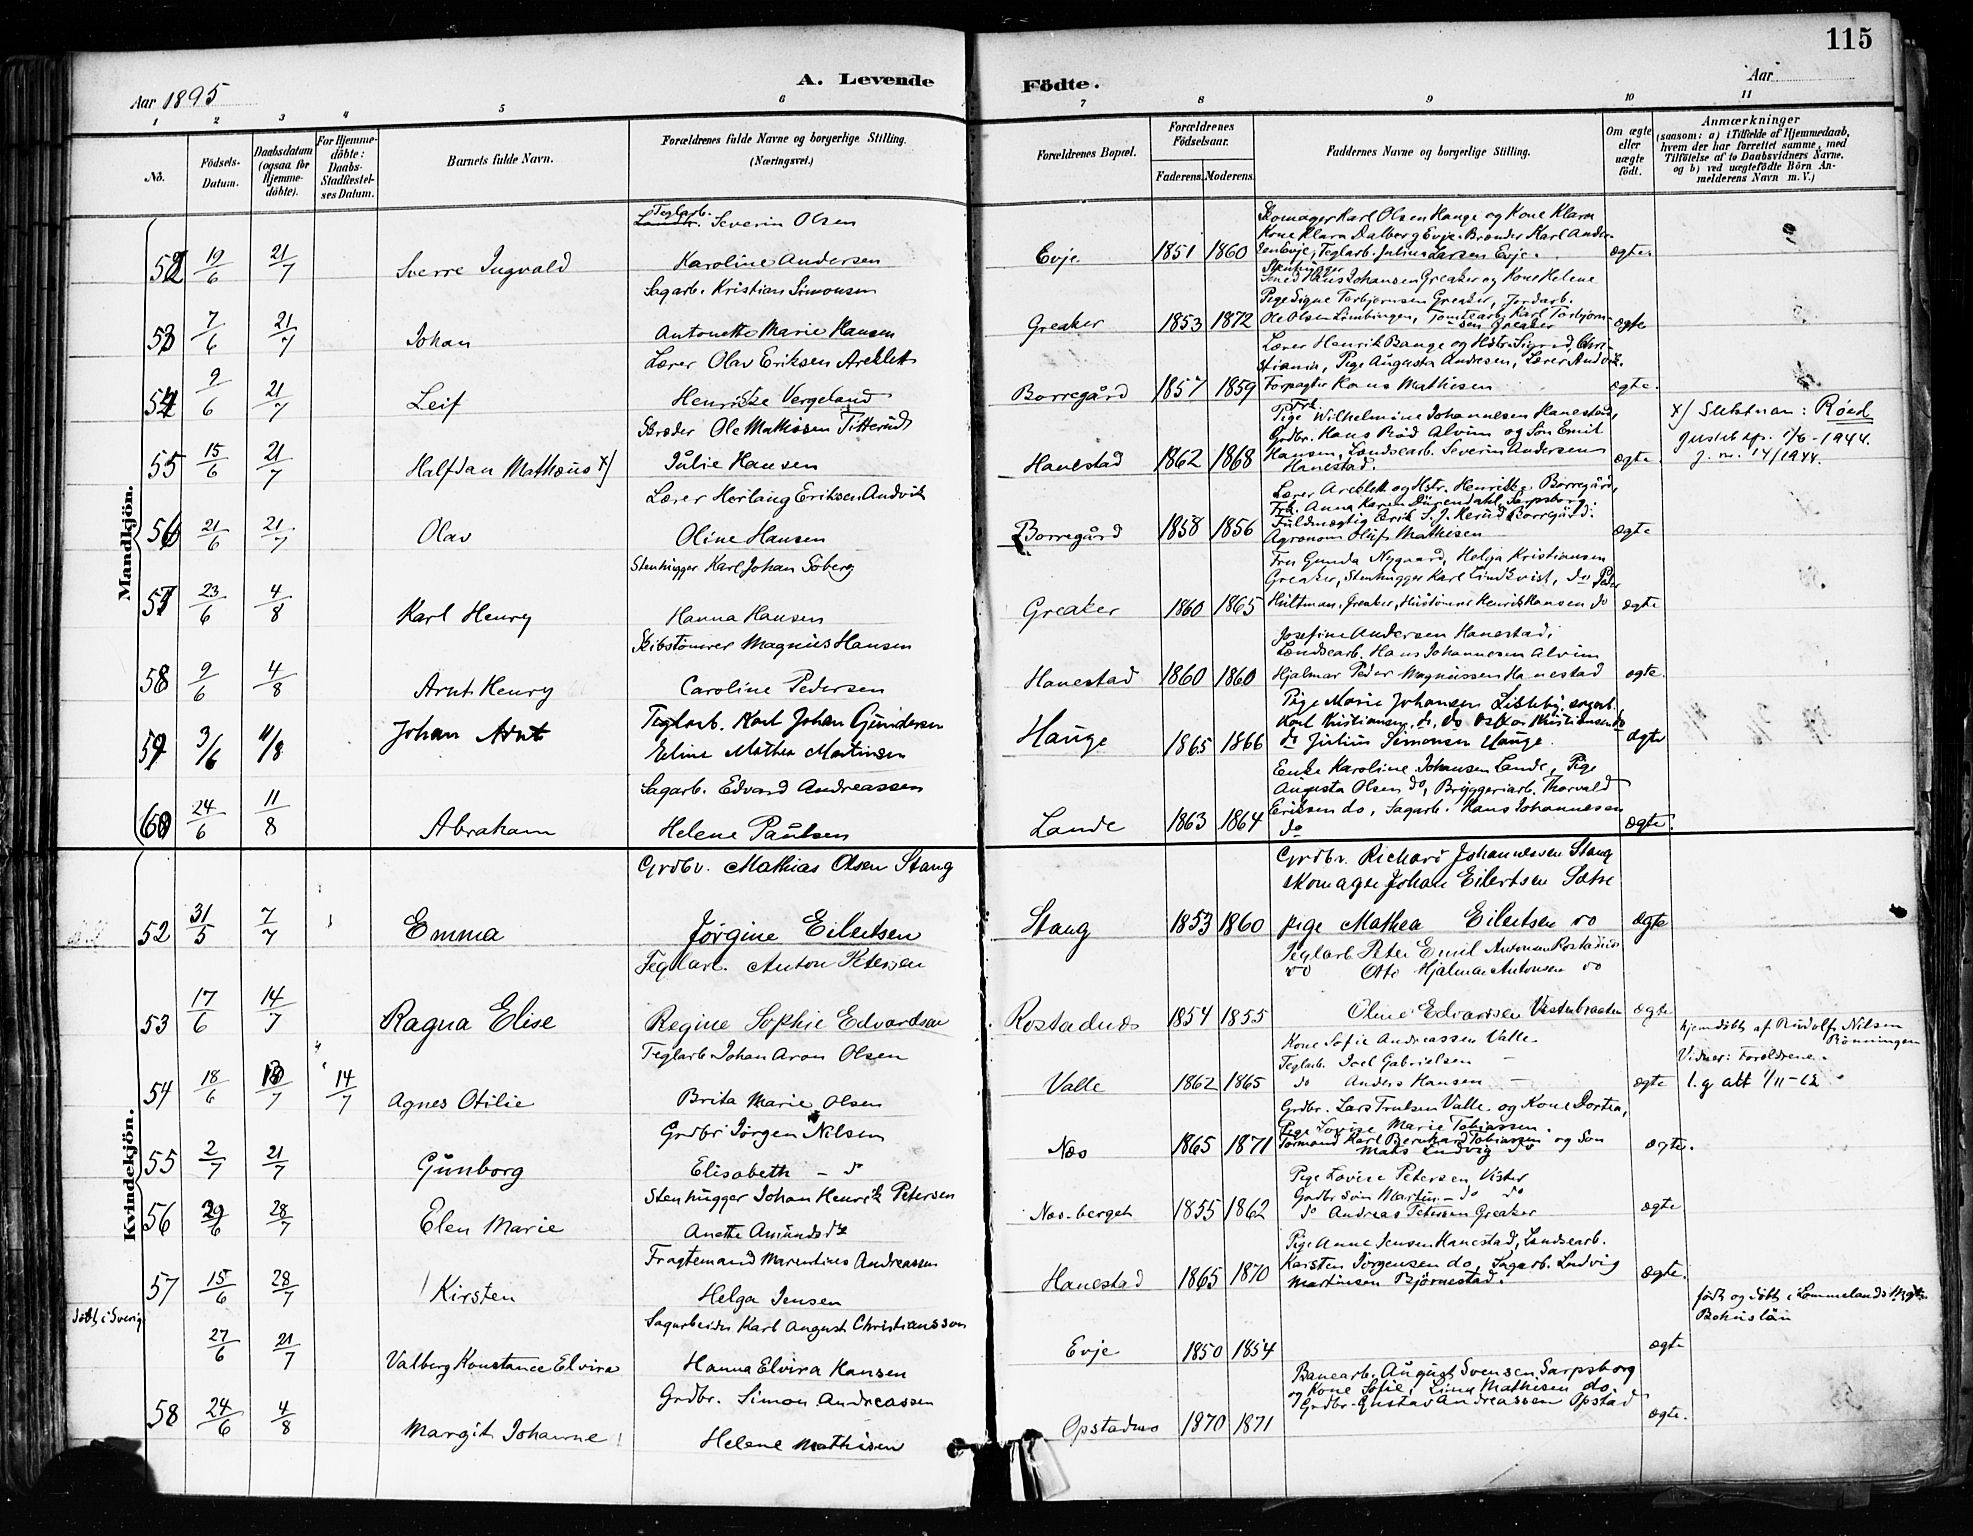 115
A. Levende Födte.
Aar 1895
Aar
1 2 3 4 5 6 7 8 9 10 11
No.
Födsels-Datum.
Daabsdatum (ogsaa for Hjemme-döbte).
For Hjemme-döbte: Daabs-Stadfæstel-ses Datum.
Barnets fulde Navn.
Forældrenes fulde Navne og borgerlige Stilling. (Næringsvei.)
Forældrenes Bopæl.
Forældrenes Födselsaar.
Faderens. Moderens.
Faddernes Navne og borgerlige Stilling.
Om ægte eller uægte födt.
Anmærkninger
(saasom: a) i Tilfælde af Hjemmedaab, hvem der har forrettet samme, med Tilföielse af to Daabsvidners Navne, og b) ved uægtefödte Börn An-melderens Navn m. V.)
Mandkjön.
Teglarb. Severin Olsen
52 19/6 21/7 Sverre Ingvald Karoline Andersen Evje 1851 1860 ægte
Skomager Karl Olsen Hauge og Kone Klara
Kone Klara Dalborg Evje. Brænder Karl Ander-
sen Evje, Teglarb. Julius Larsen Evje.
Sagarb. Kristian Simonsen
53 7/6 21/7 Johan Antonette Marie Hansen Greaker 1853 1872 ægte
Stenhugger
Smed Hans Johansen Greaker og Kone Helene
Pige Signe Torbjørnsen Greaker, Jordarb.
Ole Olsen Limbingen, Tomtearb. Karl Torbjørn-
sen Greaker
Lærer Olav Eriksen Areklett
54 9/6 21/7 Leif Henrikke Vergeland Borregård 1857 1859 ægte.
Lærer Henrik Bange og Hstr. Sigrid, Chri-
stiania, Pige Augusta Andresen, Lærer Andvik.
Forpagter Hans Mathisen
Skræder Ole Mathisen Titterud
55 15/6 21/7 Halfdan Mathæus x) Julie Hansen Hanestad 1862 1868 ægte
Frk.
Pige Wilhelmine Johannesen Hanestad,
Grdbr. Hans Röd Alvim og Søn Emil
Hansen, Landsearb. Severin Andersen
Hanestad.
x) Slektnavn: Røed
j. nr. 14/1944.
Lærer Herlaug Eriksen Andvik
56 21/6 21/7 Olav Oline Hansen Borregård 1858 1856 ægte
Lærer Areklett og Hstr. Henrikke, Borregård,
Frk. Anna Karen Dürendahl, Sarpsborg
Fuldmægtig Erik S. J. Kerud Borregård.
Agronom Oluf Mathisen
Stenhugger Karl Johan Soberg
57 23/6 4/8 Karl Henry Hanna Hansen Greaker 1860 1865 ægte
Fru Gunda Nygaard, Helga Kristiansen
Greaker, Stenhugger Karl Lindkvist, do Peter
Hultman, Greaker, Hustömrer Henrik Hansen do
Skibstömrer Magnus Hansen
58 9/6 4/8 Arnt Henry Caroline Pedersen Hanestad 1860 1860 ægte.
Josefine Andersen Hanestad,
Landsearb. Hans Johannesen Alvim
Hjalmar Peder Magnussen Hanestad
Teglarb. Karl Johan Gundersen
59 3/6 11/8 Johan Arnt Eline Mathea Martinsen Hauge 1865 1866 ægte
Pige Marie Johansen Lisleby, sagarb.
Karl Kristiansen do, do Oskar Kristiansen do
do Julius Simonsen Hauge.
Sagarb. Edvard Andreassen
60 24/6 11/8 Abraham Helene Paulsen Lande 1863 1864 ægte.
Enke Karoline Johansen Lande, Pige
Augusta Olsen do, Bryggeriarb. Thorvald
Eriksen do, Sagarb. Hans Johannesen
do
Kvindekjön.
Grdbr. Mathias Olsen Stang
52 31/5 7/7 Emma Jørgine Eilertsen Stang 1853 1860 ægte
Grdbr. Richard Johannessen Stang
Skomager Johan Eilertsen Sætre
pige Mathea Eilertsen do
Teglarb. Anton Petersen
53 17/6 14/7 Ragna Elise Regine Sophie Edvardsen Rostadnæs 1854 1855 ægte
Teglarb Peter Emil Antonsen Rostadnæs
do Otto Hjalmar Antonsen do
Oline Edvardsen Vestenbraaten
Teglarb. Johan Aron Olsen
54 18/6 /7 14/7 Agnes Otilie Brita Marie Olsen Valle 1862 1865 ægte
Kone Sofie Andreassen Valle
Teglarb. Joel Gabrielsen —
do Anders Hansen —
hjemdöbt af Rudolf Nilsen
Rönningen
Vidner: Forældrene.
l. g att 1/11-62
Grdbr Jørgen Nilsen
55 2/7 21/7 Gunborg Elisabeth — do Næs 1865 1871 ægte.
Grdbr. Lars Trulsen Valle og Kone Dortea,
Pige Lovise Marie Tobiassen.
Tormand Karl Bernhard Tobiassen og Søn
Mats Ludvig do
Stenhugger Johan Henrik Petersen
56 29/6 28/7 Elen Marie Anette Amundsdtr Næs-berget 1855 1862 ægte
Pige Lovise Petersen Vister
Grdbr søn Martin — do do
do Andreas Petersen Greaker
Fragtemand Marentius Andreassen
57 15/6 28/7 Kirsten Helga Jensen Hanestad 1865 1870 ægte.
Pige Anne Jensen Hanestad, Landsearb.
Karsten Jörgensen do, Sagarb. Ludvig
Martinsen Bjørnestad.
döbt i Sverig
Sagarbeider Karl August Christiansson
27/6 21/7 Valborg Konstance Elvira Hanna Elvira Hansen Evje 1850 1854 ægte
födt og döbt i Lommelands
Bohuslän
Grdbr. Simon Andreassen
58 24/6 4/8 Margit Johanne Helene Mathisen Opstadnæs 1870 1871 ægte.
Banearb. August Svensen Sarpsborg
og Kone Sofie, Lina Mathisen do.
Grdbr. Gustav Andreassen Opstad